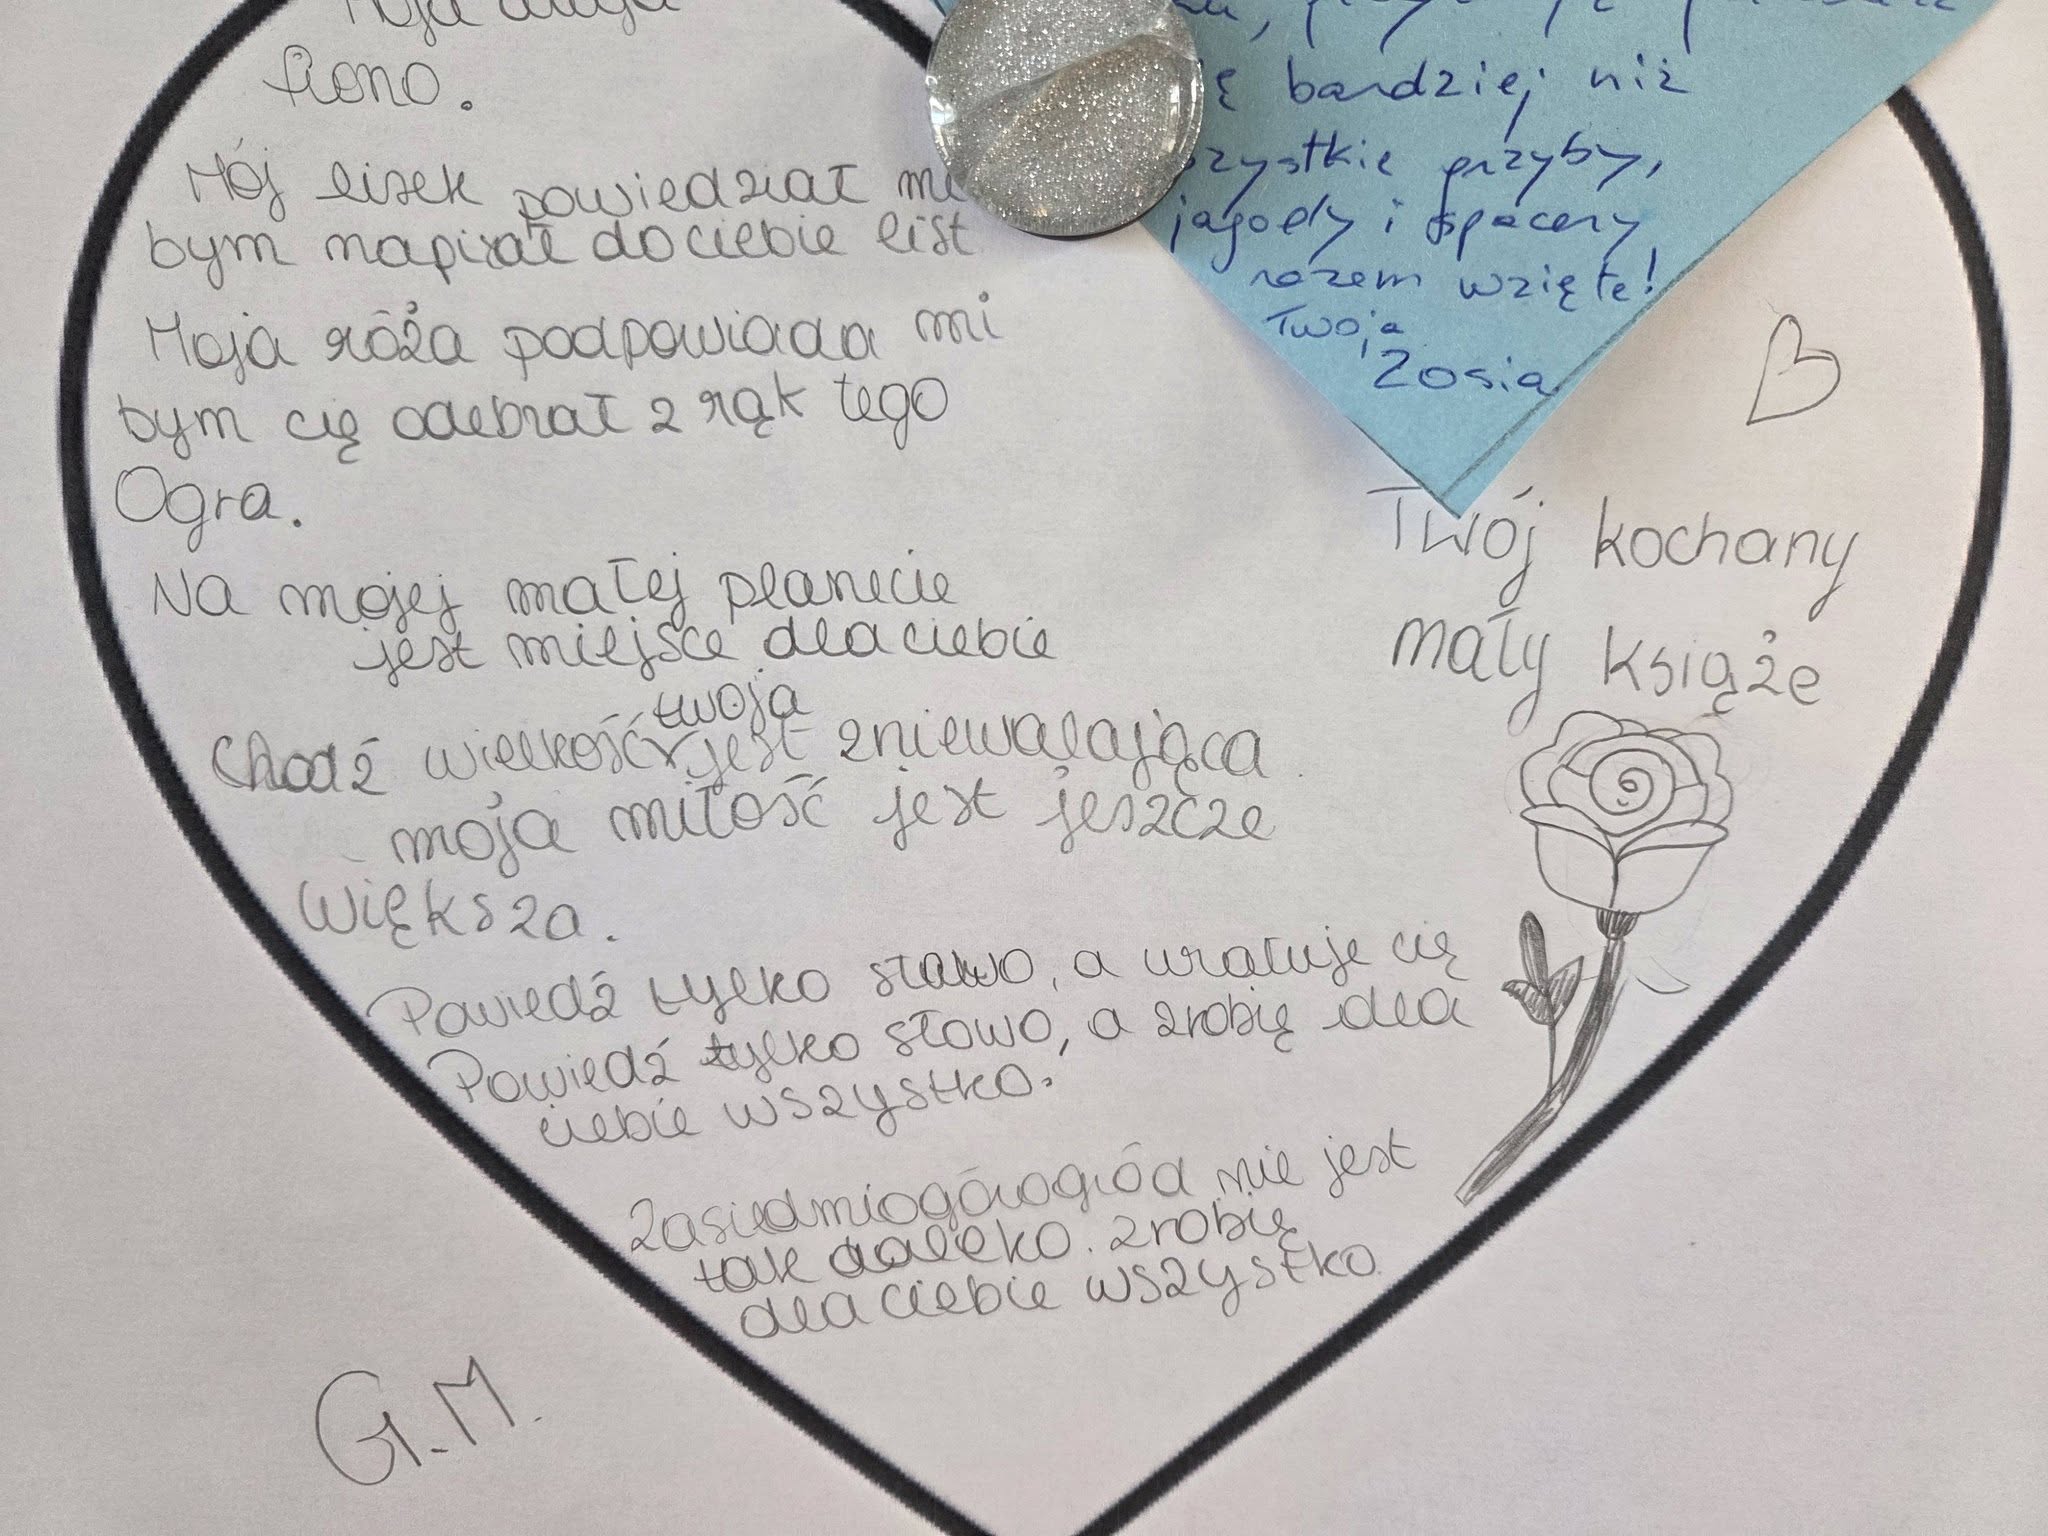 Moja droga
Fiono.
Mój lisek powiedział mi
bym napisał do ciebie list
Moja róża podpowiada mi
bym cię odebrał z rąk tego
Ogra.
Na mojej małej planecie
jest miejsce dla ciebie
twoja
Chodź wielkość jest zniewalająca
moja miłość jest jeszcze
większa.
Powiedź tylko słowo, a uratuje cię
Powiedź tylko słowo, a zrobię dla
ciebie wszystko.
Zasiedmiogórogród nie jest
tak daleko. zrobię
dla ciebie wszystko
G.M.
ę bardziej niż
szystkie grzyby,
jagody i spacery
razem wzięte!
Twoja
Zosia
Twój kochany
mały książe